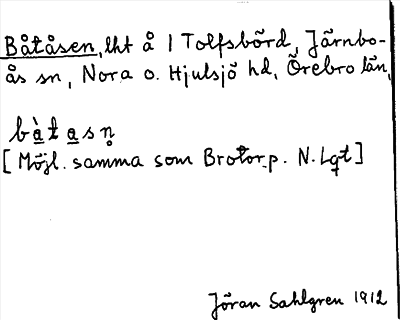 Båtåsen, lht å 1 Tolfsbörd, Järnbo-
ås sn, Nora o. Hjulsjö hd, Örebro län.
bàtasn̥
[Möjl. samma som Brotorp. N. Lqt]
Jöran Sahlgren 1912